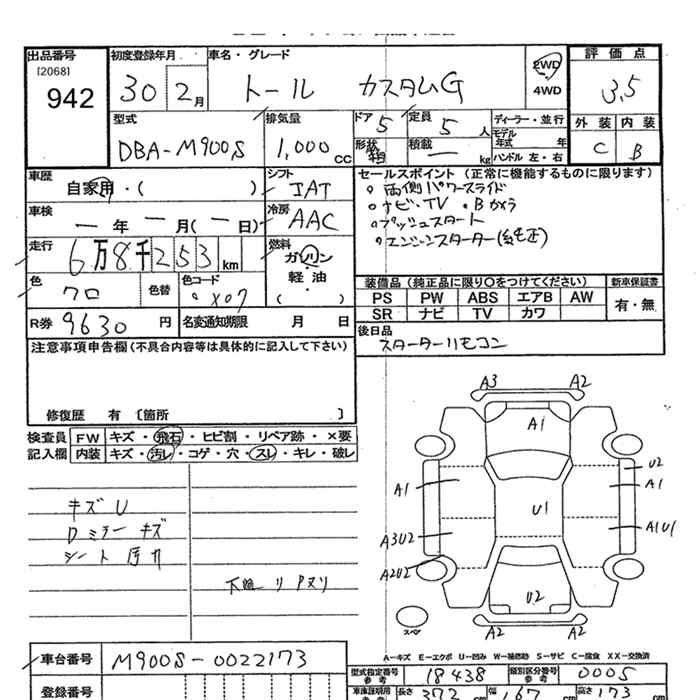 出品番号
[2068]
942
初度登録年月
30 2月
車名・グレード
トール カスタムG
2WD
4WD
評価点
3.5
型式
DBA-M900S
排気量
1,000cc
ドア
5
定員
5人
形状
箱
積載
ー kg
ディーラー・並行
モデル年式 年
ハンドル 左・右
外装
C
内装
B
車歴
自家用・( )
シフト
IAT
車検
ー年ー月(ー日)
冷房
AAC
走行
6万8千253km
燃料
ガソリン
軽油
( ・ )
色
クロ
色替
色コード
X07
R券
9630円
名変通知期限 月 日
セールスポイント(正常に機能するものに限ります)
。両側パワースライド
。ナビ・TV 。Bカメラ
。プッシュスタート
。エンジンスターター(純正)
装備品(純正品に限り○をつけてください)
PS PW ABS エアB AW
SR ナビ TV カワ
新車保証書
有・無
後日品
スターターリモコン
注意事項申告欄(不具合内容等は具体的に記入して下さい)
修復歴 有 〔箇所 〕
検査員記入欄
FW キズ・飛石・ヒビ割・リペア跡・×要
内装 キズ・汚レ・コゲ・穴・スレ・キレ・破レ
キズ U
Dミラー キズ
シート
下廻リ
A3 A2
A1
U2
A1
A1
U1
A3U2
A1U1
A2U2
U2
A2 A2
スペア
A-キズ E-エクボ U-凹み W-補修跡 S-サビ C-腐食 XX-交換済
車台番号
M900S-0022173
登録番号
型式指定番号
参考
18438
類別区分番号
参考
0005
車庫証明用
参考
長さ 372cm
幅 167cm
高さ 173